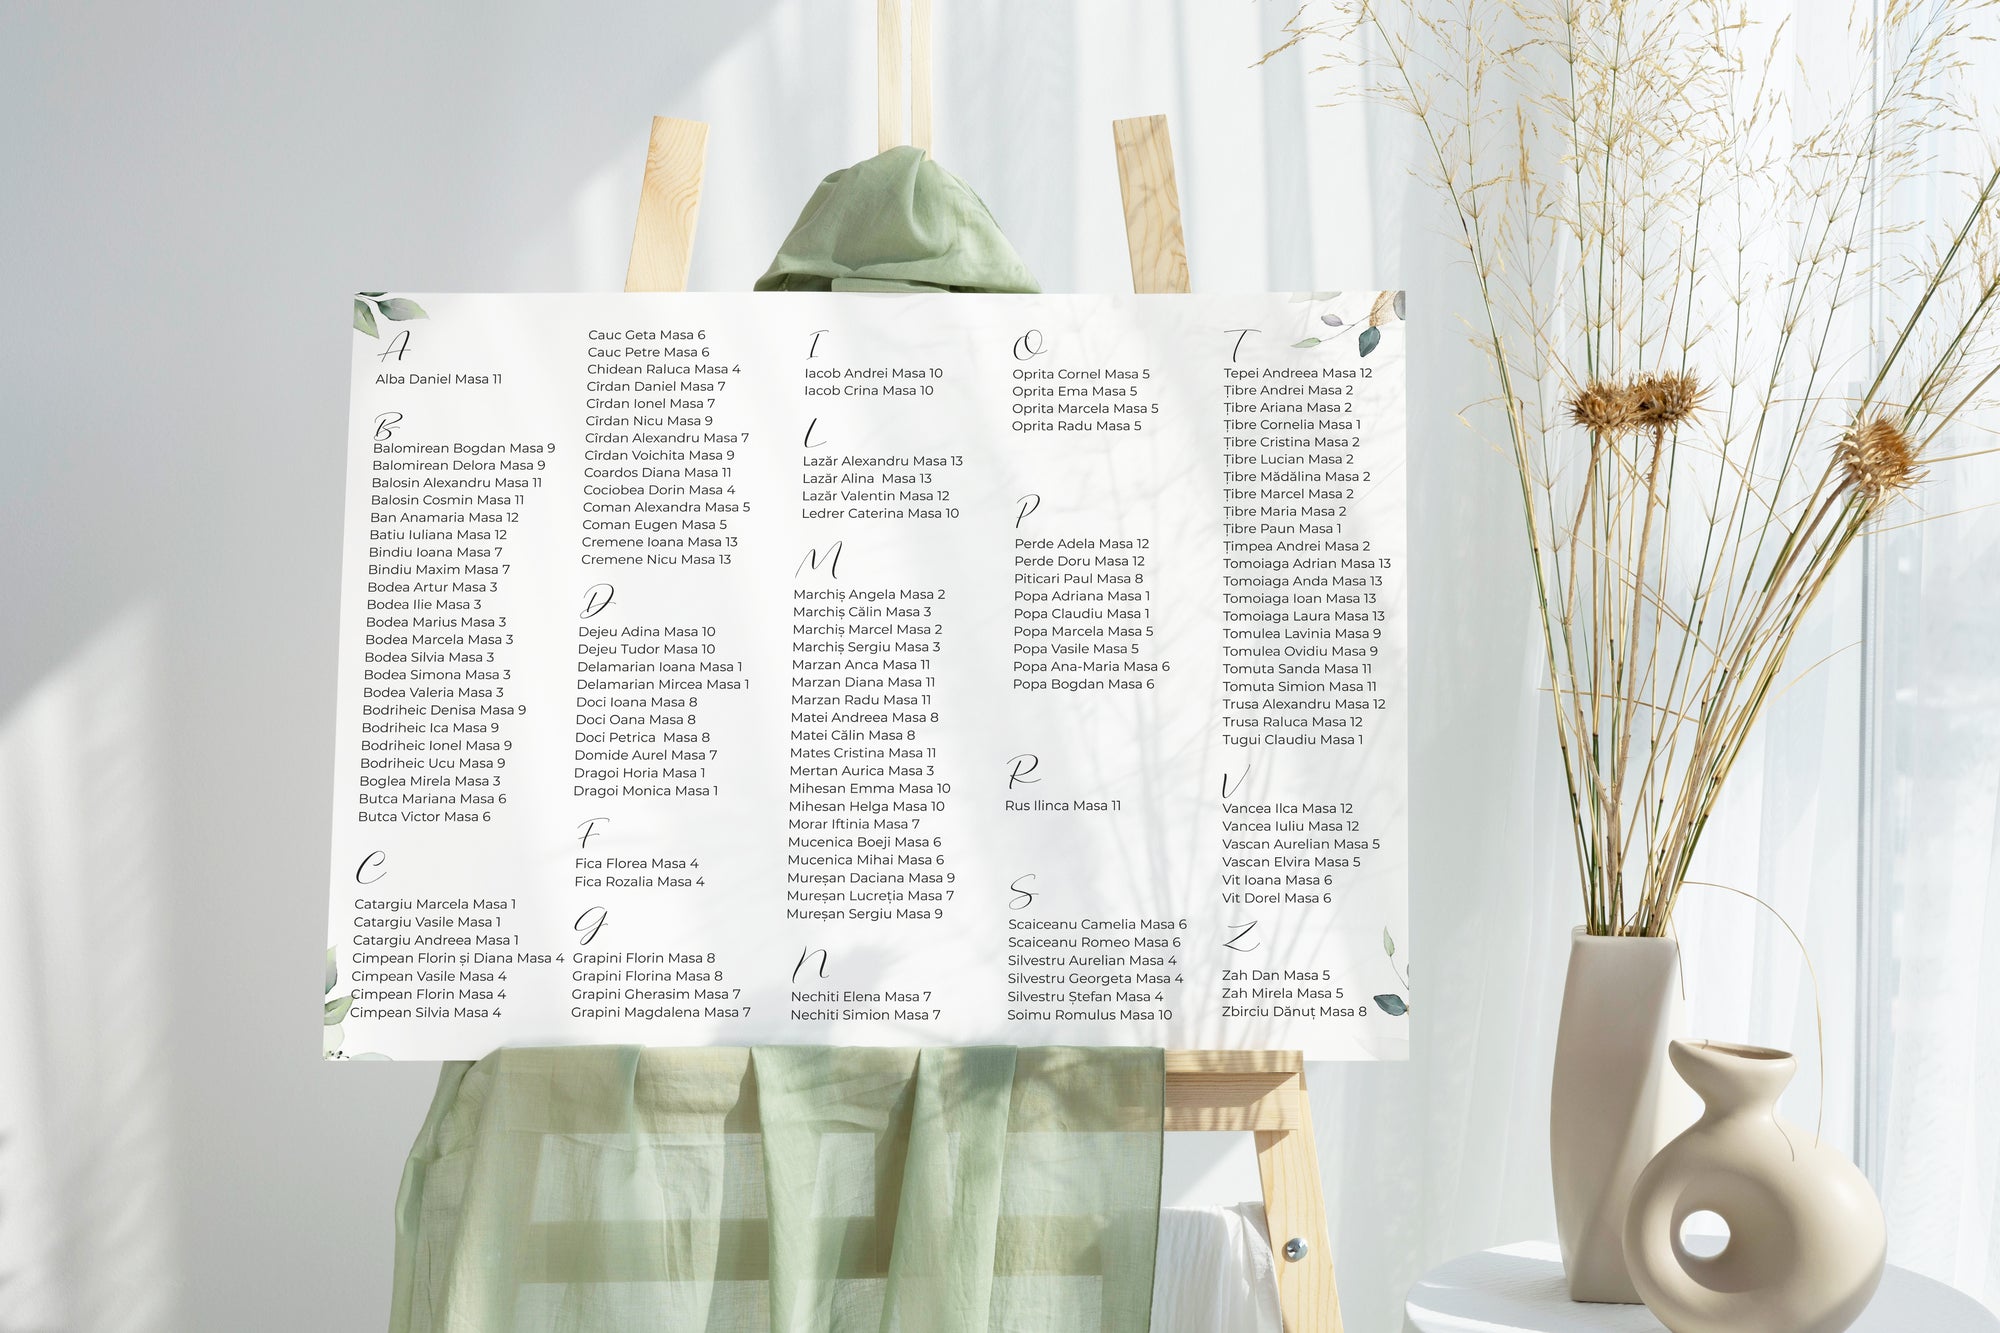 A
Alba Daniel Masa 11
B
Balomirean Bogdan Masa 9
Balomirean Delora Masa 9
Balosin Alexandru Masa 11
Balosin Cosmin Masa 11
Ban Anamaria Masa 12
Batiu Iuliana Masa 12
Bindiu Ioana Masa 7
Bindiu Maxim Masa 7
Bodea Artur Masa 3
Bodea Ilie Masa 3
Bodea Marius Masa 3
Bodea Marcela Masa 3
Bodea Silvia Masa 3
Bodea Simona Masa 3
Bodea Valeria Masa 3
Bodriheic Denisa Masa 9
Bodriheic Ica Masa 9
Bodriheic Ionel Masa 9
Bodriheic Ucu Masa 9
Boglea Mirela Masa 3
Butca Mariana Masa 6
Butca Victor Masa 6
C
Catargiu Marcela Masa 1
Catargiu Vasile Masa 1
Catargiu Andreea Masa 1
Cimpean Florin și Diana Masa 4
Cimpean Vasile Masa 4
Cimpean Florin Masa 4
Cimpean Silvia Masa 4
Cauc Geta Masa 6
Cauc Petre Masa 6
Chidean Raluca Masa 4
Cîrdan Daniel Masa 7
Cîrdan Ionel Masa 7
Cîrdan Nicu Masa 9
Cîrdan Alexandru Masa 7
Cîrdan Voichita Masa 9
Coardos Diana Masa 11
Cociobea Dorin Masa 4
Coman Alexandra Masa 5
Coman Eugen Masa 5
Cremene Ioana Masa 13
Cremene Nicu Masa 13
D
Dejeu Adina Masa 10
Dejeu Tudor Masa 10
Delamarian Ioana Masa 1
Delamarian Mircea Masa 1
Doci Ioana Masa 8
Doci Oana Masa 8
Doci Petrica Masa 8
Domide Aurel Masa 7
Dragoi Horia Masa 1
Dragoi Monica Masa 1
F
Fica Florea Masa 4
Fica Rozalia Masa 4
G
Grapini Florin Masa 8
Grapini Florina Masa 8
Grapini Gherasim Masa 7
Grapini Magdalena Masa 7
I
Iacob Andrei Masa 10
Iacob Crina Masa 10
L
Lazăr Alexandru Masa 13
Lazăr Alina Masa 13
Lazăr Valentin Masa 12
Ledrer Caterina Masa 10
M
Marchiș Angela Masa 2
Marchiș Călin Masa 3
Marchiș Marcel Masa 2
Marchiș Sergiu Masa 3
Marzan Anca Masa 11
Marzan Diana Masa 11
Marzan Radu Masa 11
Matei Andreea Masa 8
Matei Călin Masa 8
Mates Cristina Masa 11
Mertan Aurica Masa 3
Mihesan Emma Masa 10
Mihesan Helga Masa 10
Morar Iftinia Masa 7
Mucenica Boeji Masa 6
Mucenica Mihai Masa 6
Mureșan Daciana Masa 9
Mureșan Lucreția Masa 7
Mureșan Sergiu Masa 9
N
Nechiti Elena Masa 7
Nechiti Simion Masa 7
O
Oprita Cornel Masa 5
Oprita Ema Masa 5
Oprita Marcela Masa 5
Oprita Radu Masa 5
P
Perde Adela Masa 12
Perde Doru Masa 12
Piticari Paul Masa 8
Popa Adriana Masa 1
Popa Claudiu Masa 1
Popa Marcela Masa 5
Popa Vasile Masa 5
Popa Ana-Maria Masa 6
Popa Bogdan Masa 6
R
Rus Ilinca Masa 11
S
Scaiceanu Camelia Masa 6
Scaiceanu Romeo Masa 6
Silvestru Aurelian Masa 4
Silvestru Georgeta Masa 4
Silvestru Ștefan Masa 4
Soimu Romulus Masa 10
T
Tepei Andreea Masa 12
Țibre Andrei Masa 2
Țibre Ariana Masa 2
Țibre Cornelia Masa 1
Țibre Cristina Masa 2
Țibre Lucian Masa 2
Țibre Mădălina Masa 2
Țibre Marcel Masa 2
Țibre Maria Masa 2
Țibre Paun Masa 1
Țimpea Andrei Masa 2
Tomoiaga Adrian Masa 13
Tomoiaga Anda Masa 13
Tomoiaga Ioan Masa 13
Tomoiaga Laura Masa 13
Tomulea Lavinia Masa 9
Tomulea Ovidiu Masa 9
Tomuta Sanda Masa 11
Tomuta Simion Masa 11
Trusa Alexandru Masa 12
Trusa Raluca Masa 12
Tugui Claudiu Masa 1
V
Vancea Ilca Masa 12
Vancea Iuliu Masa 12
Vascan Aurelian Masa 5
Vascan Elvira Masa 5
Vit Ioana Masa 6
Vit Dorel Masa 6
Z
Zah Dan Masa 5
Zah Mirela Masa 5
Zbirciu Dănuț Masa 8